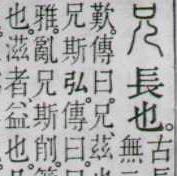 兄長也。古長
無二
歎。傳曰。兄。茲
兄斯弘。傳曰。兄
雅。亂兄斯削。箋
也。滋者。益也。